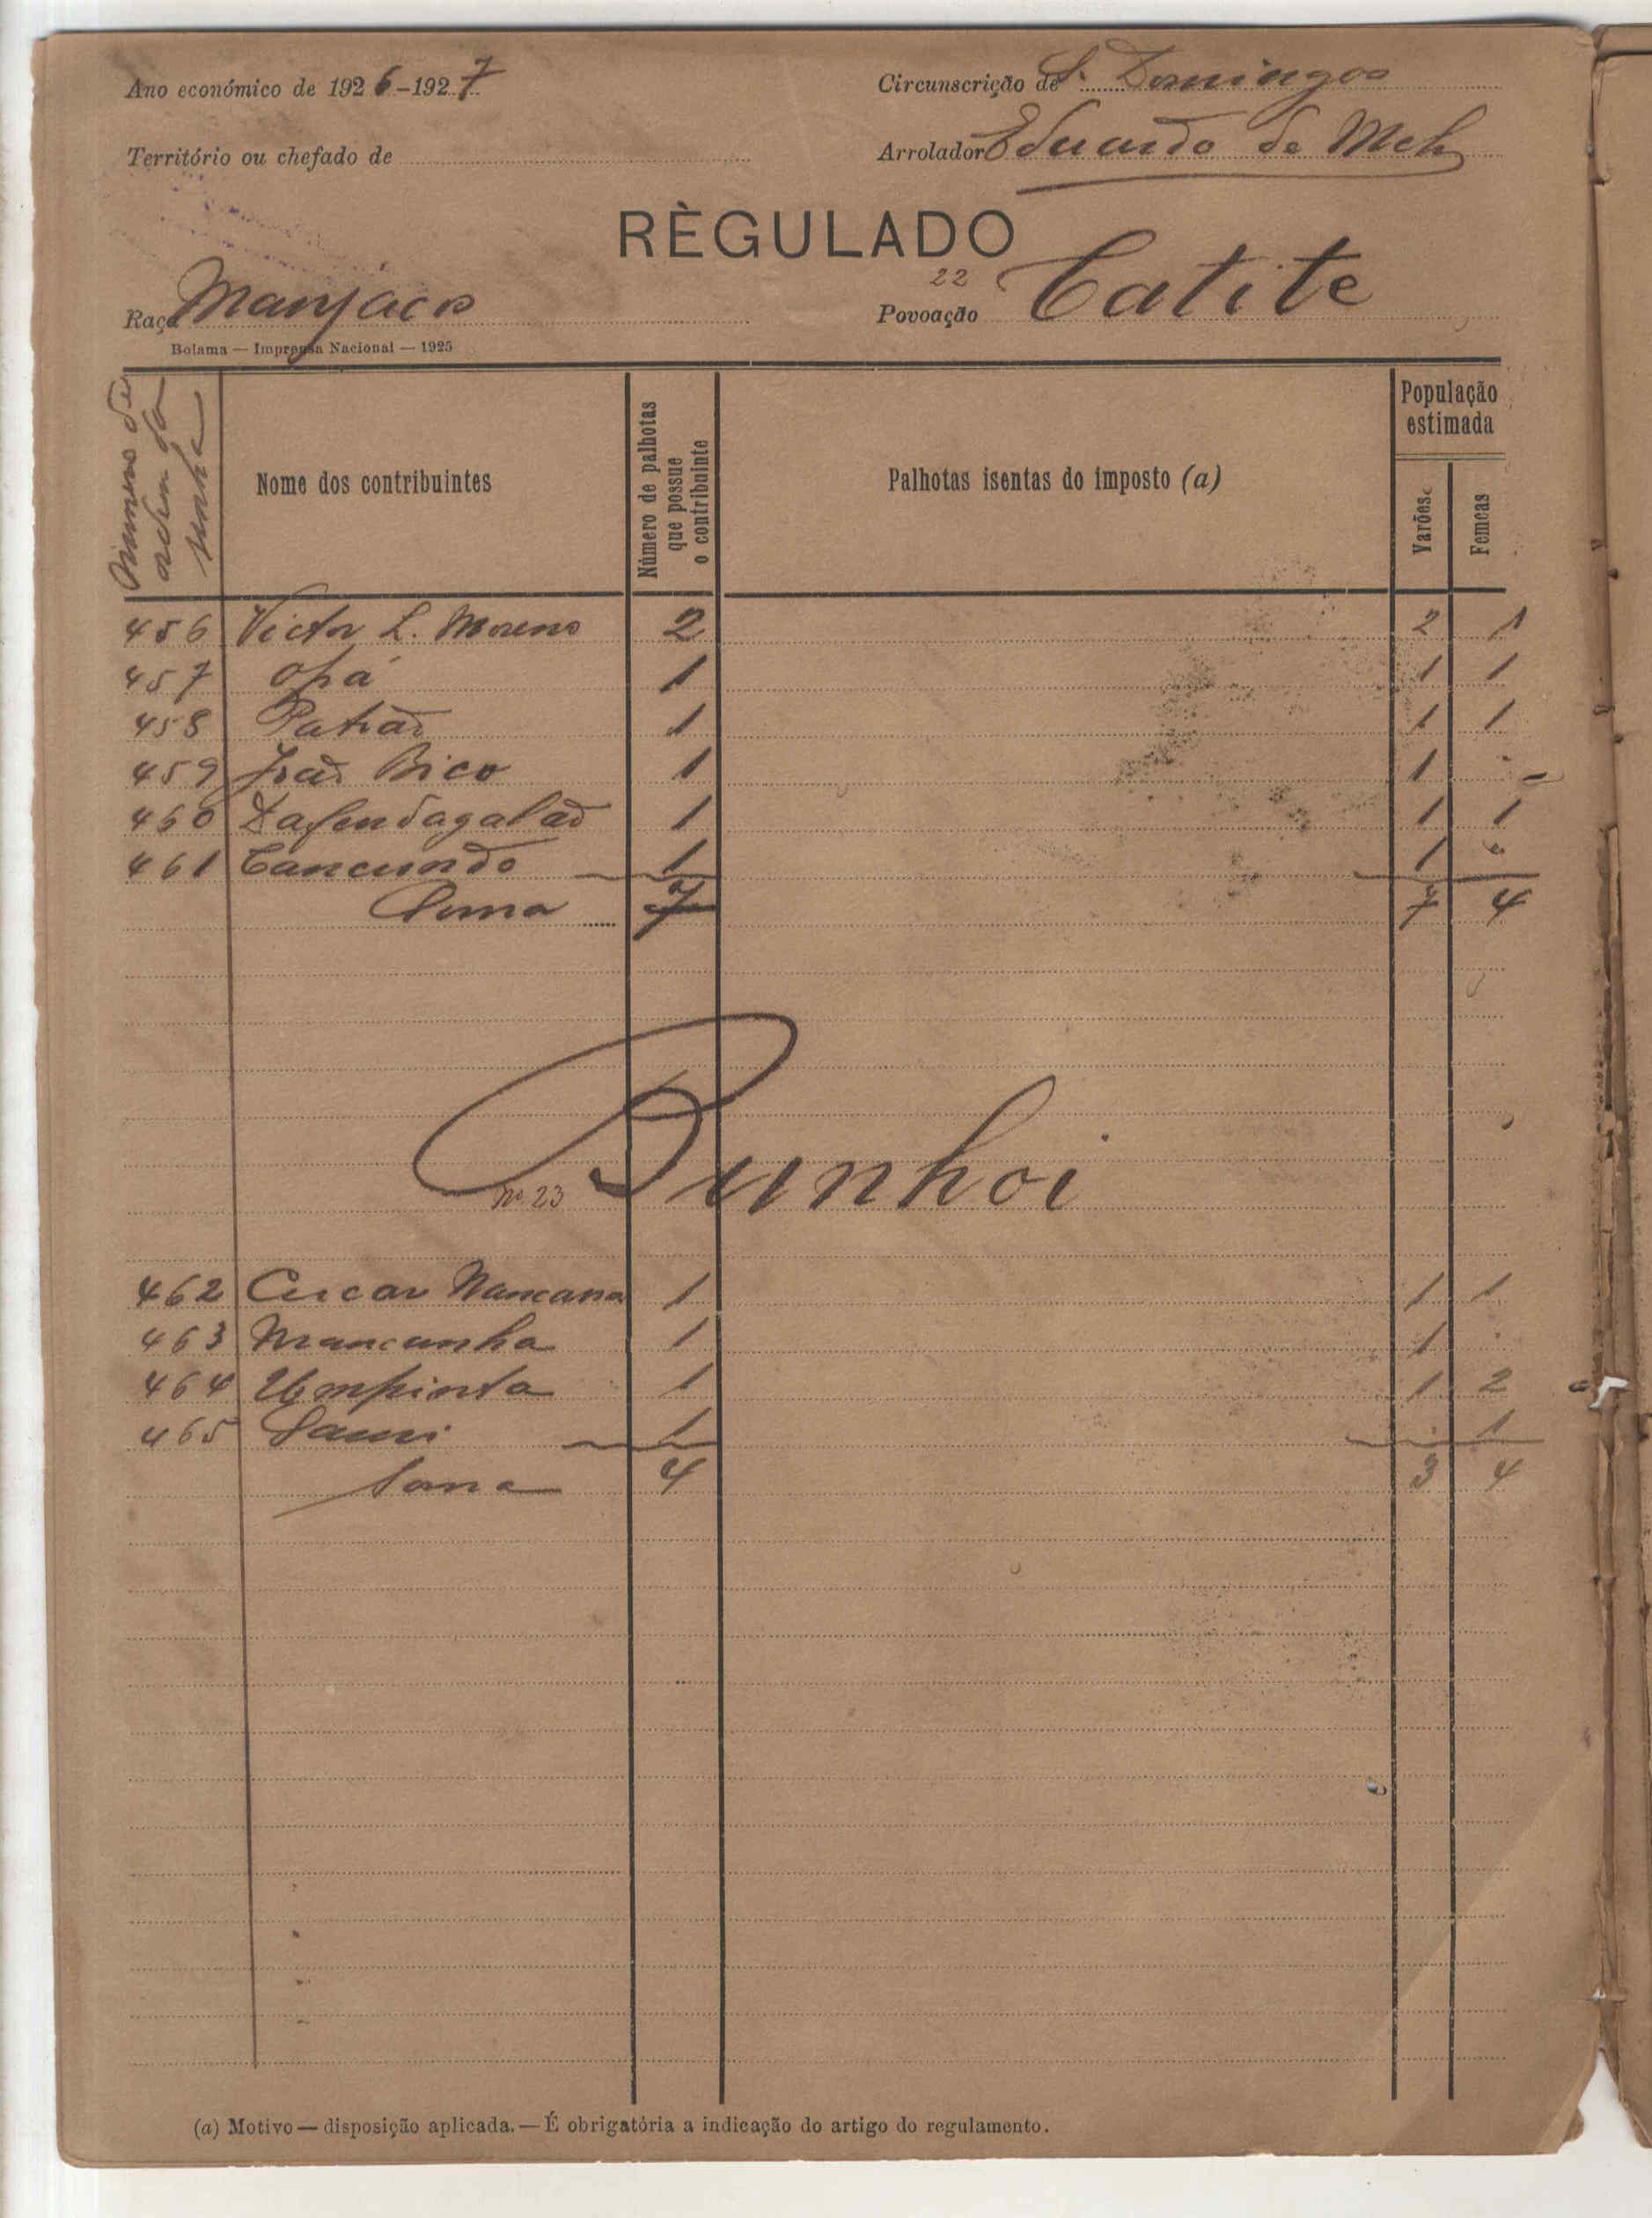 Ano económico de 1926-1927
Circunscrição de S. Domingos
Território ou chefado de
Arrolador Eduardo de Melo
RÈGULADO
22
Raça Manjaco
Povoação Catite
Bolama — Imprensa Nacional — 1925
Número de ordem da senha
Nome dos contribuintes
Número de palhotas que possue o contribuinte
Palhotas isentas do imposto (a)
População estimada
Varões
Femeas
456 Victor L. Moreno 2 2 1
457 Opá 1 1 1
458 Patrão 1 1 1
459 João Bico 1 1 -
460 1 1 1
461 Cancundo 1 1 "
Soma 7 7 4
Nº 23 Punhoi
462 Cucar Nancana 1 1 1
463 Mancunha 1 1 .
464 Umpinta 1 1 2
465 1 . 1
Soma 4 3 4
(a) Motivo — disposição aplicada. — É obrigatória a indicação do artigo do regulamento.